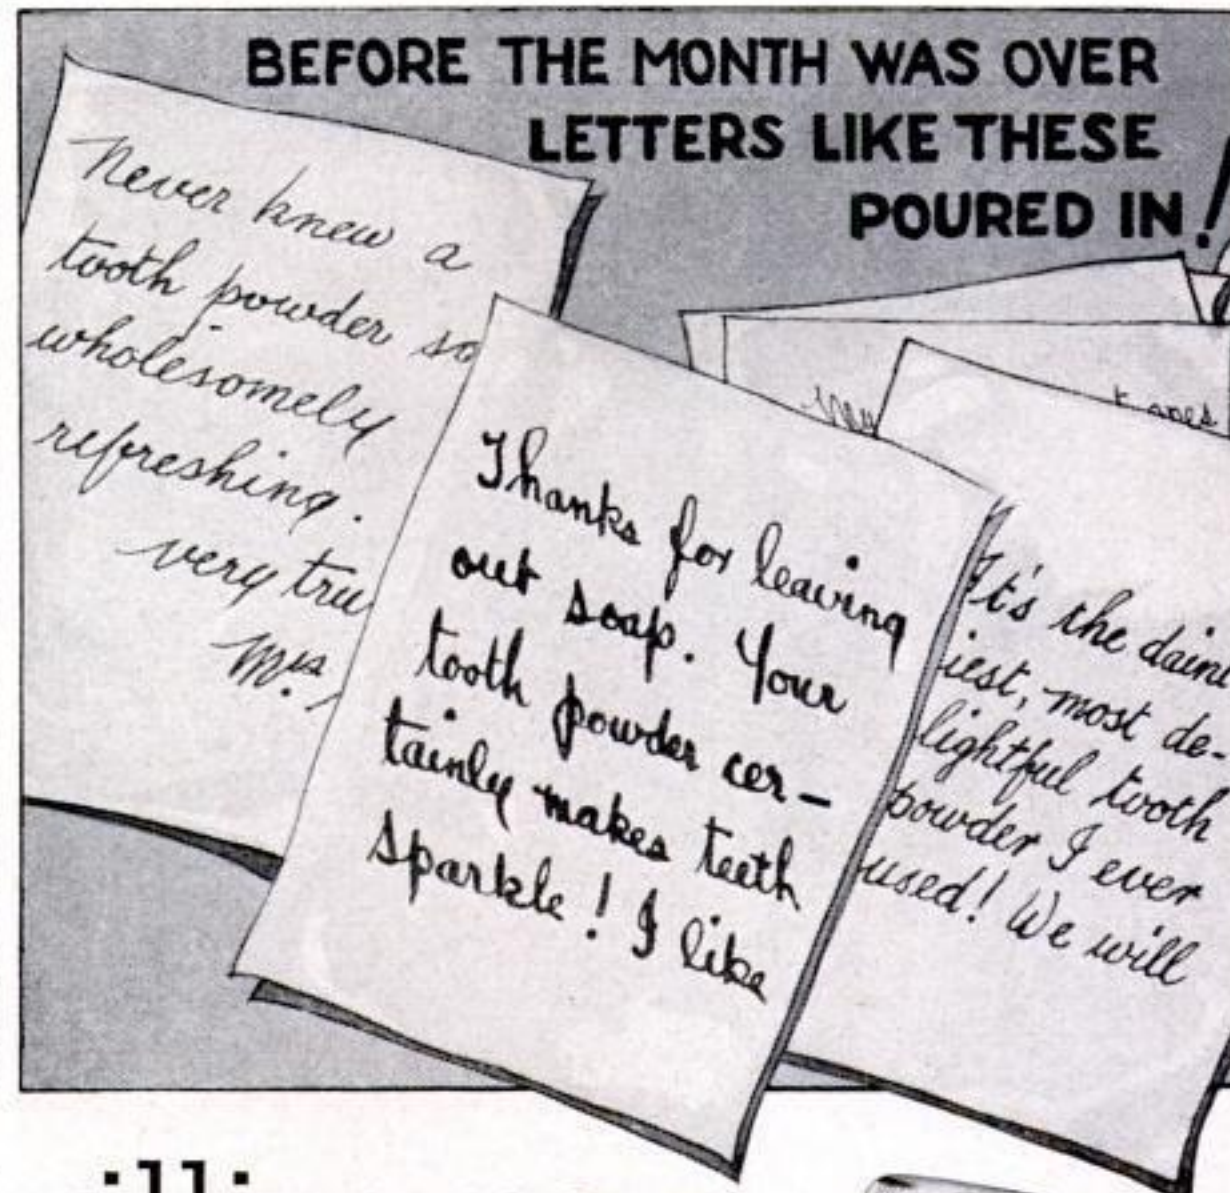 BEFORE THE MONTH WAS OVER
LETTERS LIKE THESE
POURED IN!
Never knew a
tooth powder so
wholesomely
refreshing.
very tru
Mrs.
Thanks for leaving
out soap. Your
tooth powder cer-
tainly makes teeth
sparkle! I like
It's the daint
iest, most de-
lightful tooth
powder I ever
used! We will
·11·